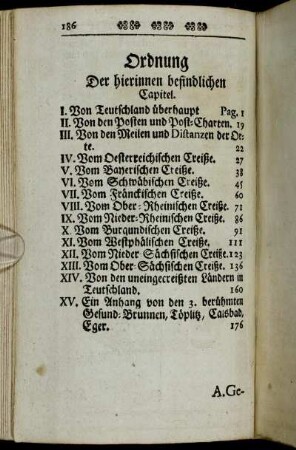 186
Ordnung
Der hierinnen befindlichen
Capitel.
I. Von Teutschland überhaupt Pag. 1
II. Von den Posten und Post-Charten. 19
III. Von den Meilen und Distanzen der Or-
te. 22
IV. Vom Oesterreichischen Creiße. 27
V. Vom Bayerischen Creiße. 38
VI. Vom Schwäbischen Creiße. 45
VII. Vom Fränckischen Creiße. 60
VIII. Vom Ober-Rheinischen Creiße. 71
IX. Vom Nieder-Rheinischen Creiße. 86
X. Vom Burgundischen Creiße. 91
XI. Vom Westphälischen Creiße. 111
XII. Vom Nieder Sächsischen Creiße. 123
XIII. Vom Ober-Sächsischen Creiße. 136
XIV. Von den uneingecreißten Ländern in
Teutschland. 160
XV. Ein Anhang von den 3. berühmten
Gesund-Brunnen, Töplitz, Carlsbad,
Eger. 176
A.Ge-